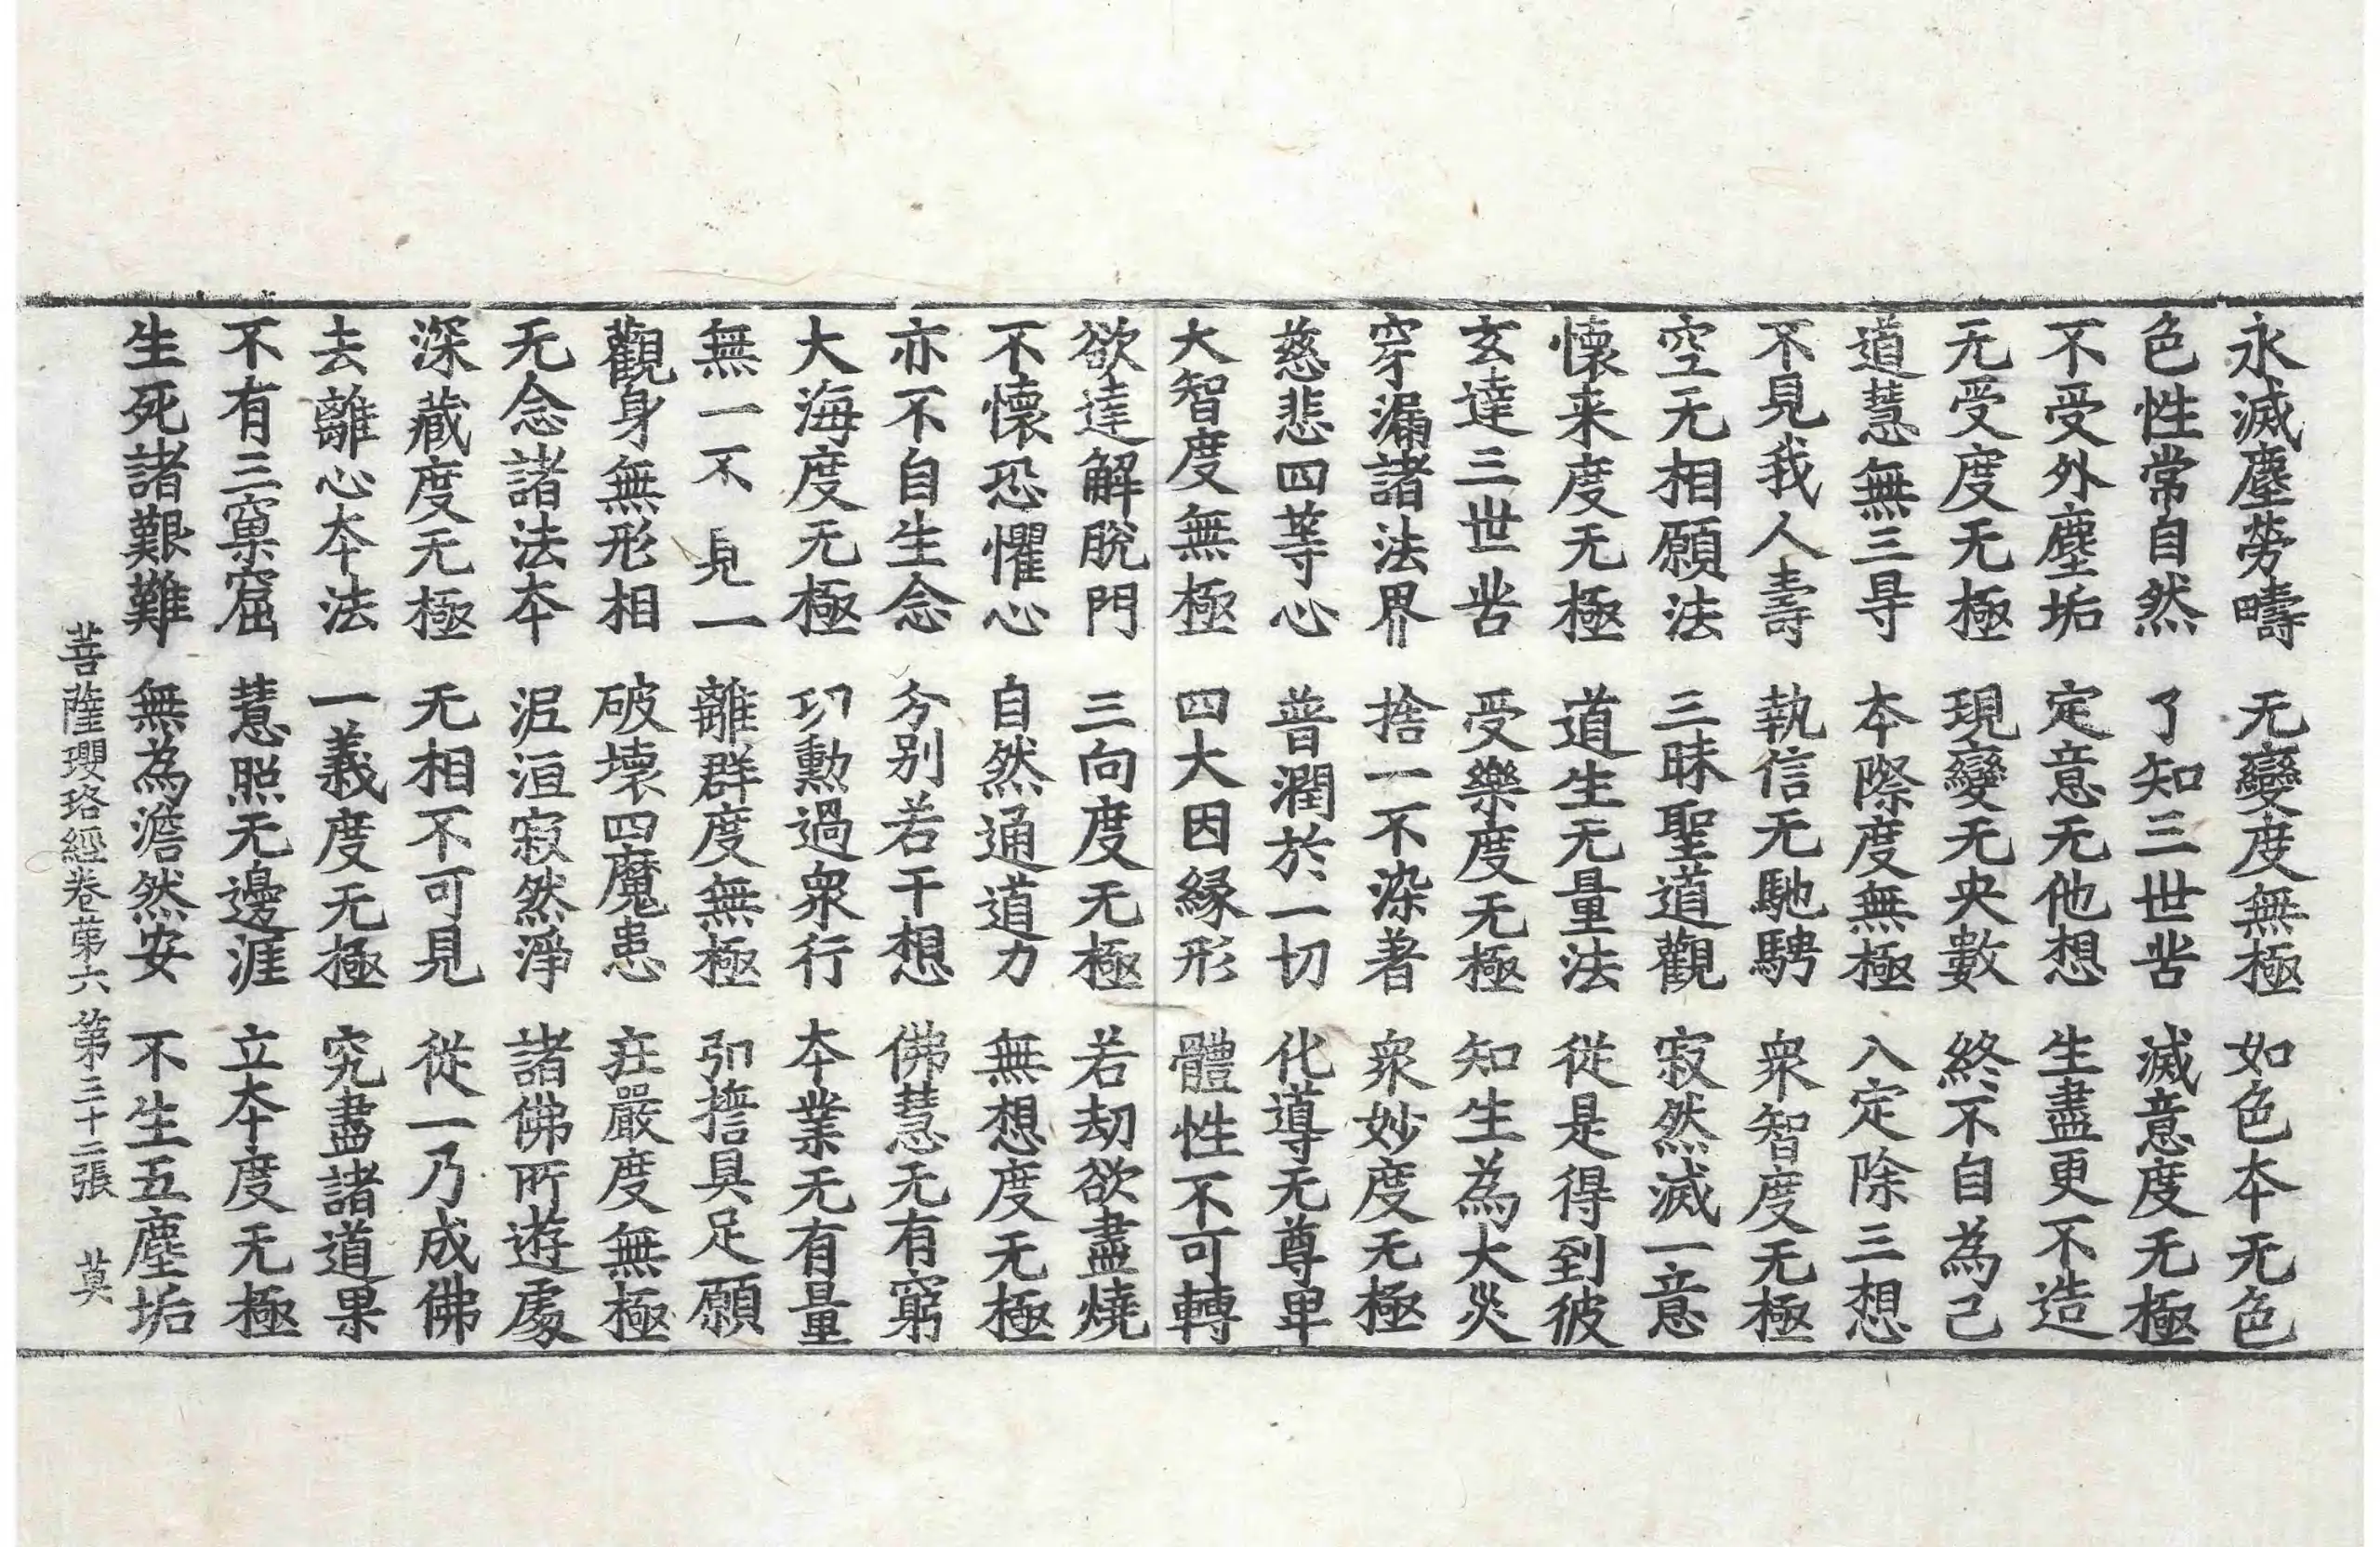 永滅塵勞疇　无變度無極　如色本无色
色性常自然　了知三世苦　滅意度无極
不受外塵垢　定意无他想　生盡更不造
无受度无極　現變无央數　終不自為己
道慧無三㝵　本際度無極　入定除三想
不見我人壽　執信无馳騁　衆智度无極
空无相願法　三昧聖道觀　寂然滅一意
懷来度无極　道生无量法　從是得到彼
玄達三世苦　受樂度无極　知生為大災
穿漏諸法界　捨一不染著　衆妙度无極
慈悲四等心　普潤於一切　化導无尊卑
大智度無極　四大因緣形　體性不可轉
欲達解脫門　三向度无極　若劫欲盡燒
不懷恐懼心　自然通道力　無想度无極
亦不自生念　分別若干想　佛慧无有窮
大海度无極　功勳過衆行　本業无有量
無一不見一　離群度無極　弘擔具足願
觀身無形相　破壞四魔患　莊嚴度無極
无念諸法本　泥洹寂然淨　諸佛所遊處
深藏度无極　无相不可見　從一乃成佛
去離心本法　一義度无極　究盡諸道果
不有三窠窟　慧照无邊涯　立本度无極
生死諸艱難　無為澹然安　不生五塵垢
菩薩瓔珞經卷第六　第三十二張　莫